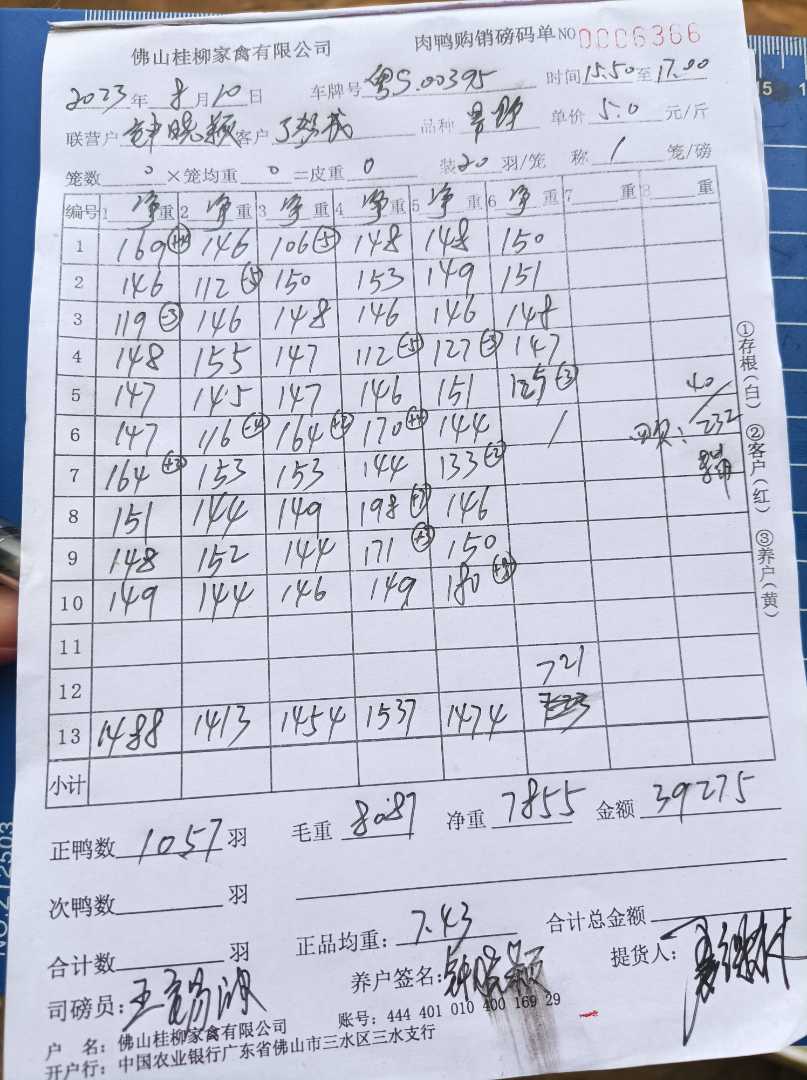 佛山桂柳家禽有限公司 肉鸭购销磅码单 NO 0006366
2023年 8月10日 车牌号 粤S.00395 时间 15.50至17.00
联营户 钟晓颖 客户 品种 单价 5.0 元/斤
笼数 0 ×笼均重 0 =皮重 0 装20羽/笼 称 1 笼/磅
编号 1 净重 2 净重 3 净重 4 净重 5 净重 6 净重 7 重 8 重
1 169 146 106(-5) 148 148 150
2 146 112(-5) 150 153 149 151
3 119(-3) 146 148 146 146 148
4 148 155 147 112(-5) 127(-3) 147
5 147 145 147 146 151 125(-3) 40/
6 147 116(-4) 164(+2) 170(+4) 144 / 232
7 164(+3) 153 153 144 133(-2)
8 151 144 149 198(+7) 146
9 148 152 144 171(+3) 150
10 149 144 146 149 180
11
12 721
13 1488 1413 1454 1537 1474
小计
①存根(白) ②客户(红) ③养户(黄)
正鸭数 1057 羽 毛重 8087 净重 7855 金额 39275
次鸭数 羽
合计数 羽 正品均重: 7.43 合计总金额
司磅员: 养户签名: 钟晓颖 提货人:
户 名: 佛山桂柳家禽有限公司 账号: 444 401 010 400 169 29
开户行: 中国农业银行广东省佛山市三水区三水支行
NO.212503
15